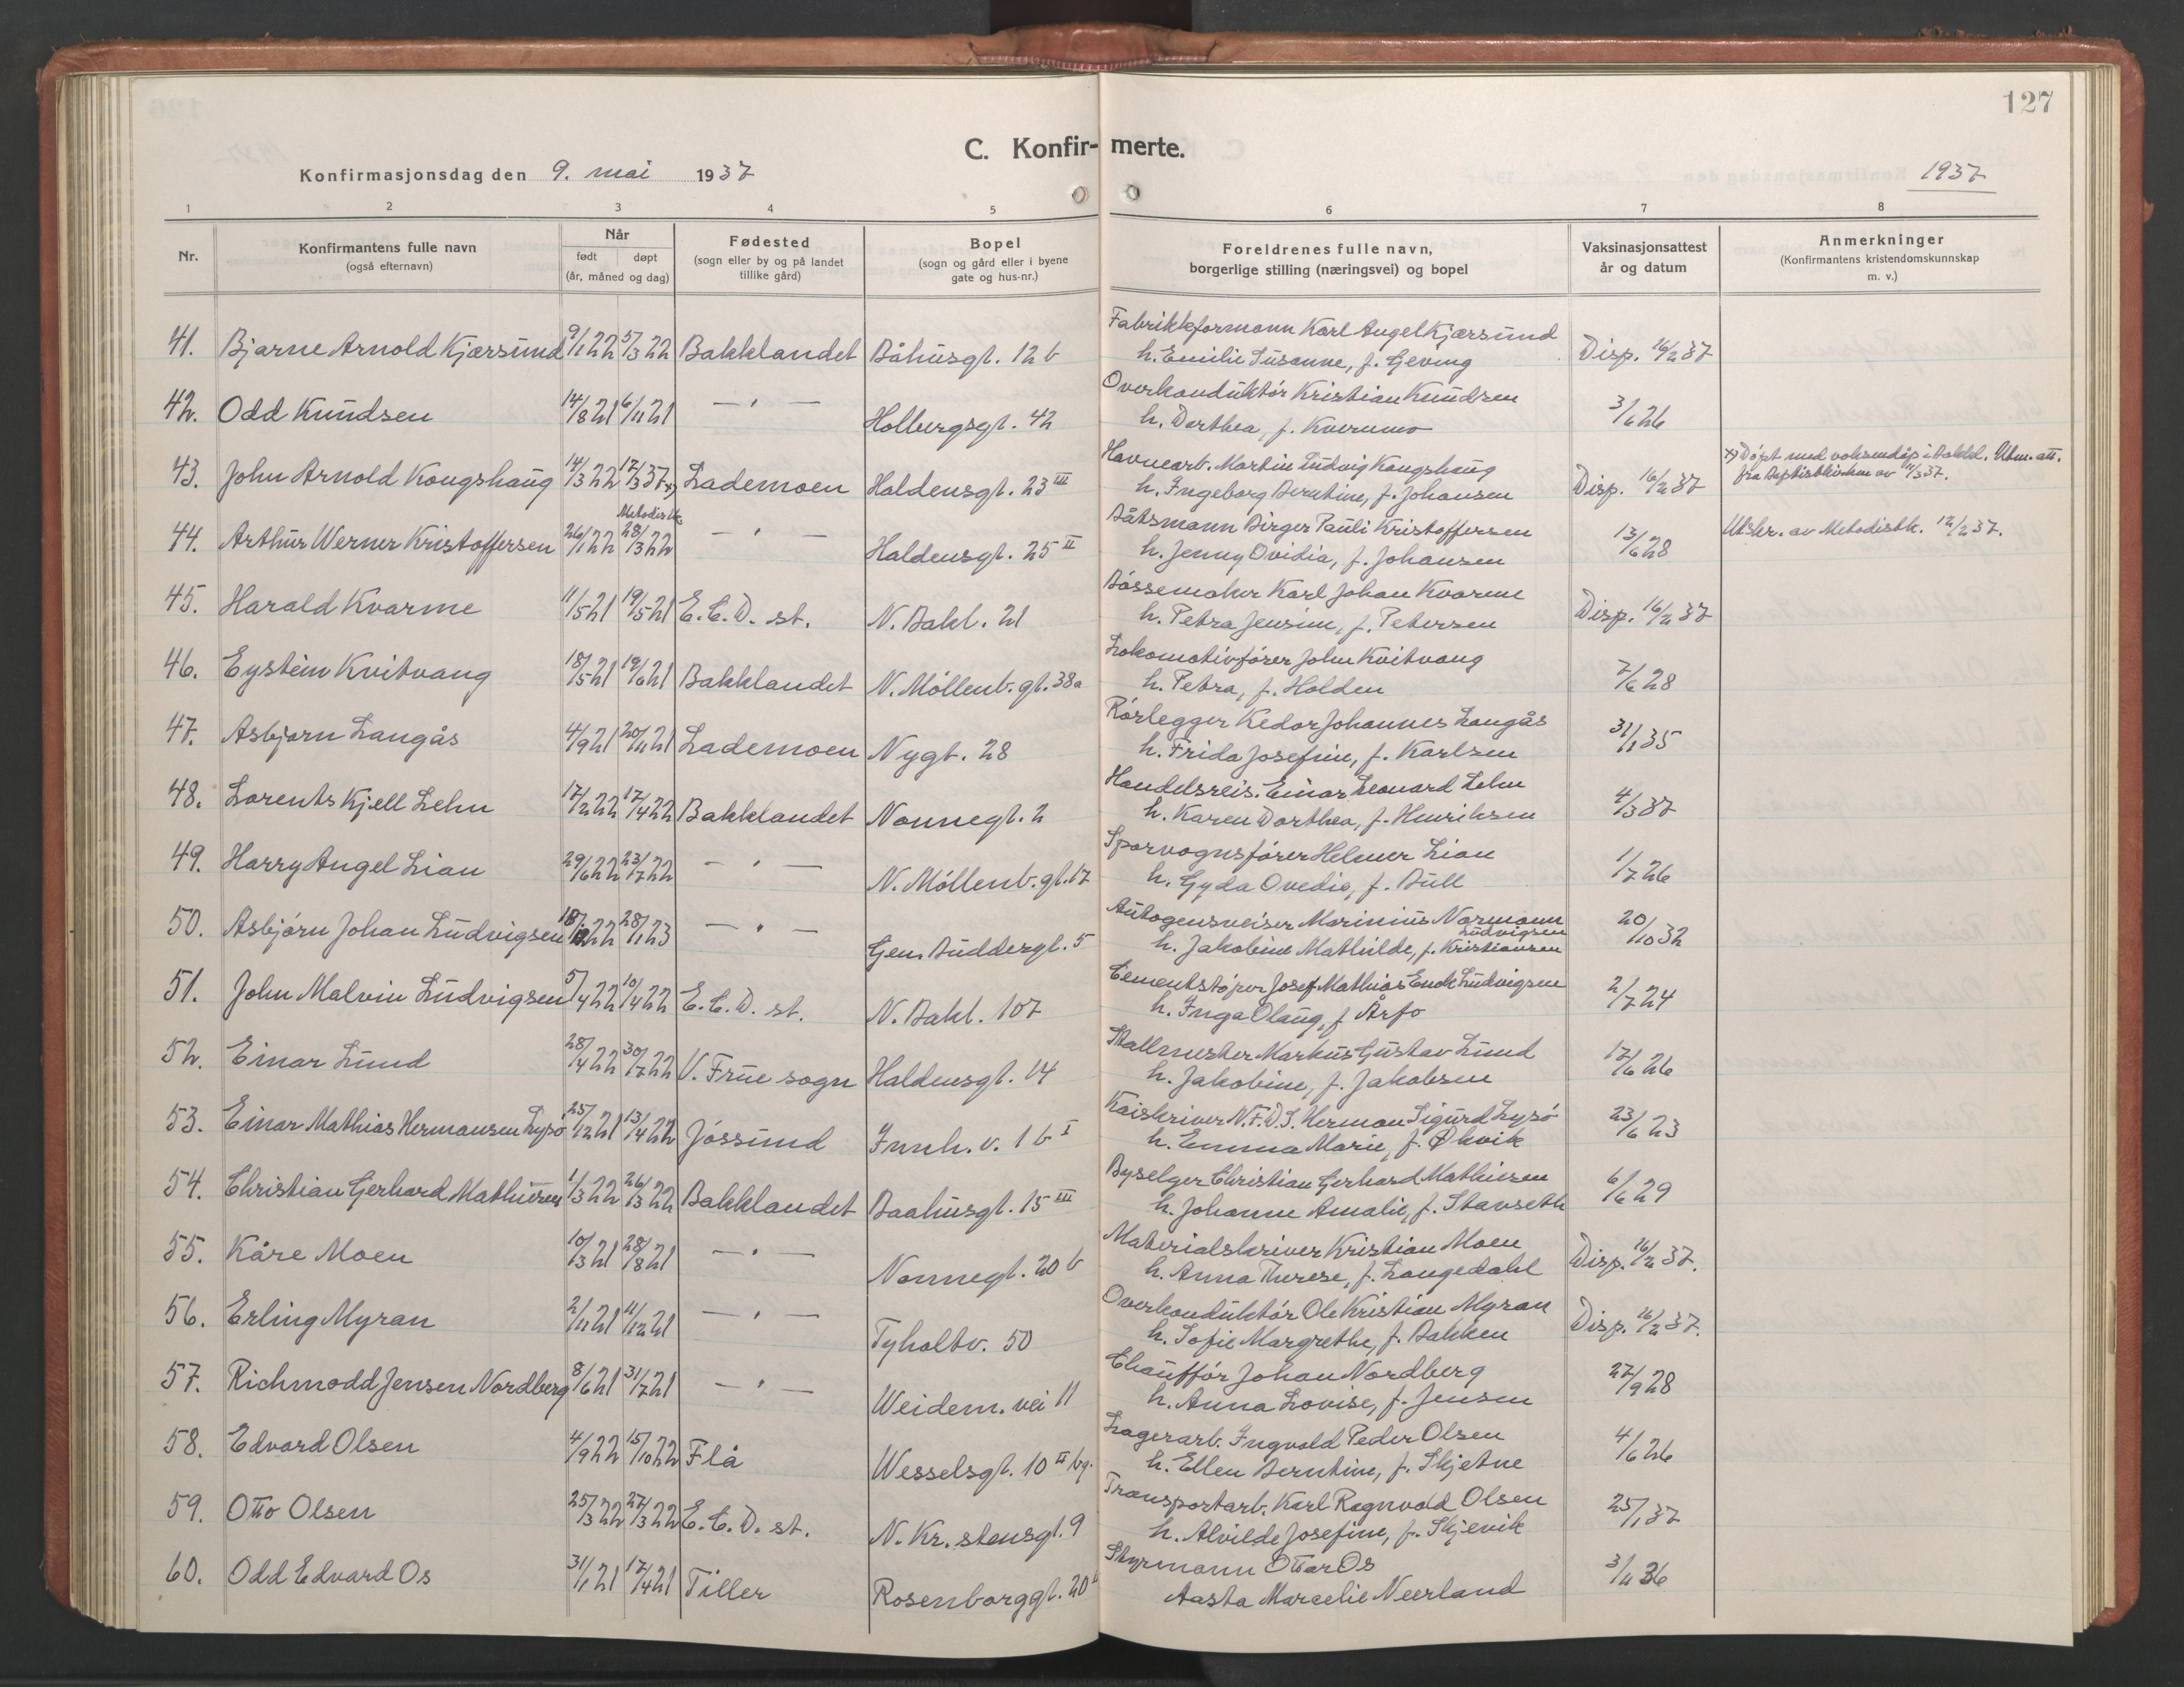 127
C. Konfirmerte.
Konfirmasjonsdag den 9. mai 1937
1937
1 2 3 4 5 6 7 8
Nr. | Konfirmantens fulle navn (også efternavn) | Når født døpt (år, måned og dag) | Fødested (sogn eller by og på landet tillike gård) | Bopel (sogn og gård eller i byene gate og hus-nr.) | Foreldrenes fulle navn, borgerlige stilling (næringsvei) og bopel | Vaksinasjonsattest år og datum | Anmerkninger (Konfirmantens kristendomskunnskap m. v.)
41. Bjarne Arnold Kjærsund 9/1 22 5/3 22 Bakklandet Båhusgt. 12 b Fabrikkformann Karl Angel Kjærsund
h. Emilie Susanne, f. Geving Disp. 16/2 37
42. Odd Knudsen 14/8 21 6/11 21 — " — Holbergsgt. 42 Overkonduktør Kristian Knudsen
h. Dorthea, f. Kverumo 3/6 26
43. John Arnold Kongshaug 14/3 22 17/3 37 x) Lademoen Haldensgt. 23 III Havnearb. Martin Ludvig Kongshaug
h. Ingeborg Berntine, f. Johansen Disp. 16/2 37 x) Døpt med voksendåp i Bakkl. Utm. att.
fra Baptistkirken av 11/3 37.
44. Arthur Werner Kristoffersen 26/1 22 Metodistk. 28/3 22 — " — Haldensgt. 25 II Båtsmann Birger Pauli Kristoffersen
h. Jenny Ovidia, f. Johansen 13/6 28 Utskr. av Metodistk. 12/2 37.
45. Harald Kvarme 11/5 21 19/5 21 E. C. D. st. N. Bakl. 21 Bøssemaker Karl Johan Kvarme
h. Petra Jensine, f. Petersen Disp. 16/2 37
46. Eystein Kvitvang 18/5 21 19/6 21 Bakklandet N. Møllenb. gt. 38a Lokomotivfører John Kvitvang
h. Petra, f. Holden 7/6 28
47. Asbjørn Langås 4/9 21 20/11 21 Lademoen Nygt. 28 Rørlegger Kedor Johannes Langås
h. Frida Josefine, f. Karlsen 31/1 35
48. Lorents Kjell Lehn 17/2 22 17/4 22 Bakklandet Nonnegt. 2 Handelsreis. Einar Leonard Lehn
h. Karen Dorthea, f. Henriksen 4/3 37
49. Harry Angel Lian 29/6 22 23/7 22 — " — N. Møllenb. gt. 17 Sporvognsfører Helmer Lian
h. Gyda Ovedie, f. Bull 1/7 26
50. Asbjørn Johan Ludvigsen 18/12 22 28/1 23 — " — Gen. Buddergt. 5 Autogensveiser Marinius Normann Ludvigsen
h. Jakobine Mathilde, f. Kristiansen 20/10 32
51. John Malvin Ludvigsen 5/4 22 10/4 22 E. C. D. st. N. Bakl. 107 Cementstøper Josef Mathias Enok Ludvigsen
h. Inga Olaug, f. Årfo 2/7 24
52. Einar Lund 28/4 22 30/7 22 V. Frue sogn Haldensgt. 14 Stallmester Markus Gustav Lund
h. Jakobine, f. Jakobsen 17/6 26
53. Einar Mathias Hermansen Lysø 25/12 21 13/4 22 Jøssund Innh. v. 1 b I Kaiskriver N.F.D.S. Herman Sigurd Lysø
h. Emma Marie, f. Økvik 23/6 23
54. Christian Gerhard Mathiesen 1/3 22 26/3 22 Bakklandet Baahusgt. 15 III Byselger Christian Gerhard Mathiesen
h. Johanne Amalie, f. Stavseth 6/6 29
55. Kåre Moen 10/3 21 28/8 21 — " — Nonnegt. 20 b Materialskriver Kristian Moen
h. Anna Therese, f. Langedahl Disp. 16/2 37.
56. Erling Myran 2/11 21 11/12 21 — " — Tyholtv. 50 Overkonduktør Ole Kristian Myran
h. Sofie Margrethe, f. Bakken Disp. 16/2 37.
57. Richmodd Jensen Nordberg 8/6 21 31/7 21 — " — Weidem. vei 11 Chauffør Johan Nordberg
h. Anna Lovise, f. Jensen 27/9 28
58. Edvard Olsen 4/9 22 15/10 22 Flå Wesselsgt. 10 II bg. Lagerarb. Ingvald Peder Olsen
h. Ellen Berntine, f. Skjetne 4/6 26
59. Otto Olsen 25/3 22 27/3 22 E. C. D. st. N. Kr. stensgt. 9 Transportarb. Karl Ragnvald Olsen
h. Alvilde Josefine, f. Skjevik 25/1 37
60. Odd Edvard Os 31/1 21 17/4 21 Tiller Rosenborggt. 20 Styrmann Ottar Os
Aasta Marcelie Neerland 3/11 36